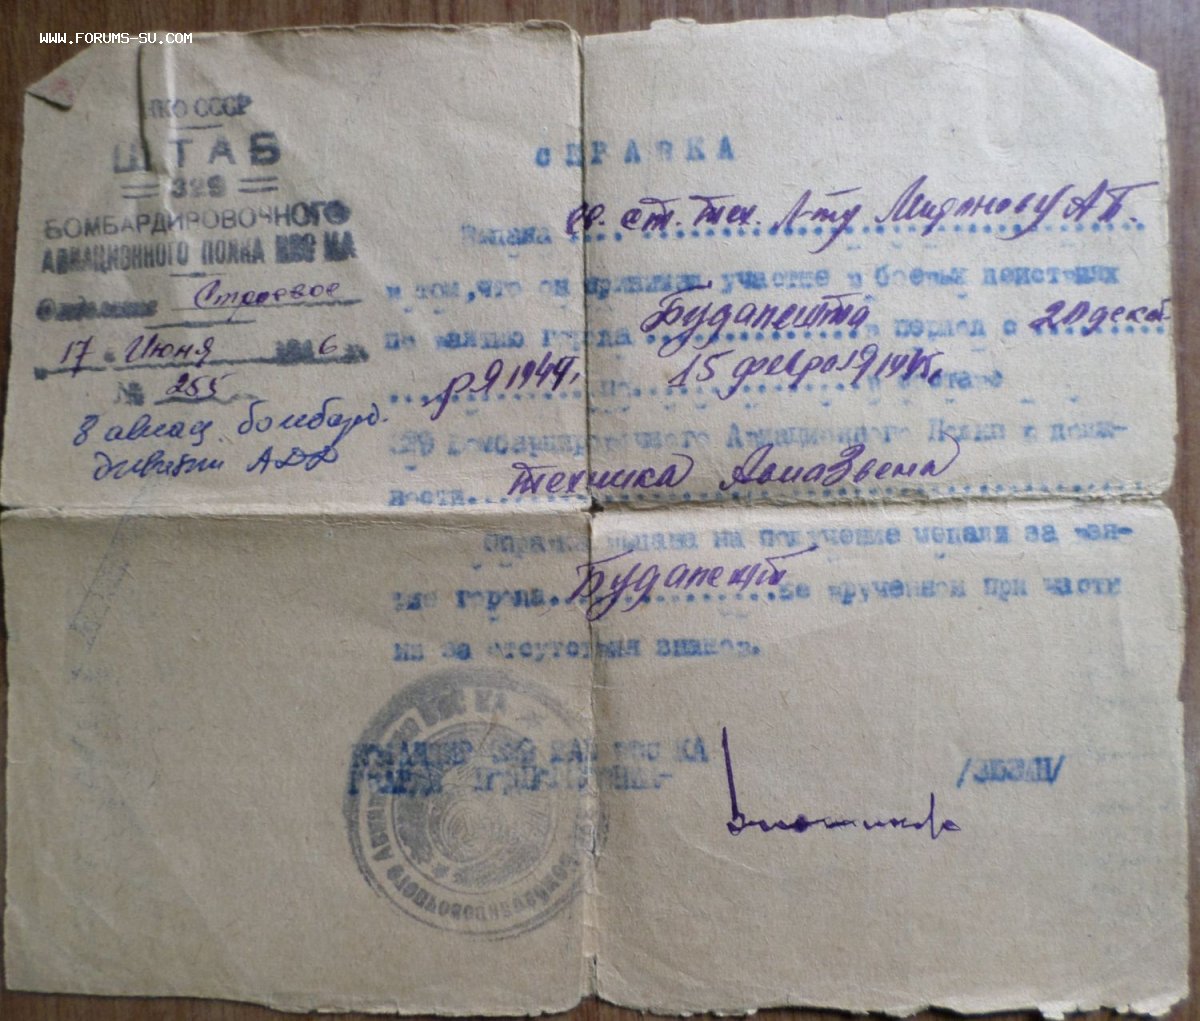 WWW.FORUMS-SU.COM
НКО СССР
ШТАБ
329
БОМБАРДИРОВОЧНОГО
АВИАЦИОННОГО ПОЛКА ВВС КА
Отделение Строевое
17 Июня 1946 г.
№ 255
8 авиац. бомбард.
дивизии АДД
СПРАВКА
Выдана ст. тех. Л-ту А.П.
в том, что он принимал участие в боевых действиях
по взятию города Будапешта в период с 20 декаб
ря 1944г. по 15 февраля 1945г. в составе
329 Бомбардировочного Авиационного Полка в долж-
ности техника Авиазвена
Справка выдана на получение медали за взя-
тие города Будапешт не врученной при части
из за отсутствия знаков.
КОМАНДИР 329 БАП ВВС КА
ГВАРДИИ ПОДПОЛКОВНИК-